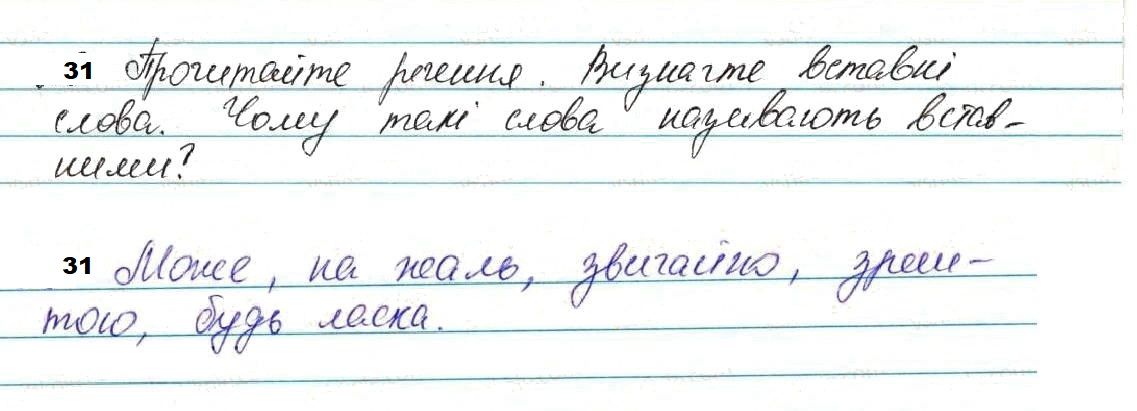 31 Прочитайте речення. Визначте вставні
слова. Чому такі слова називають встав-
ними?
31 Може, на жаль, звичайно, зреш-
тою, будь ласка.